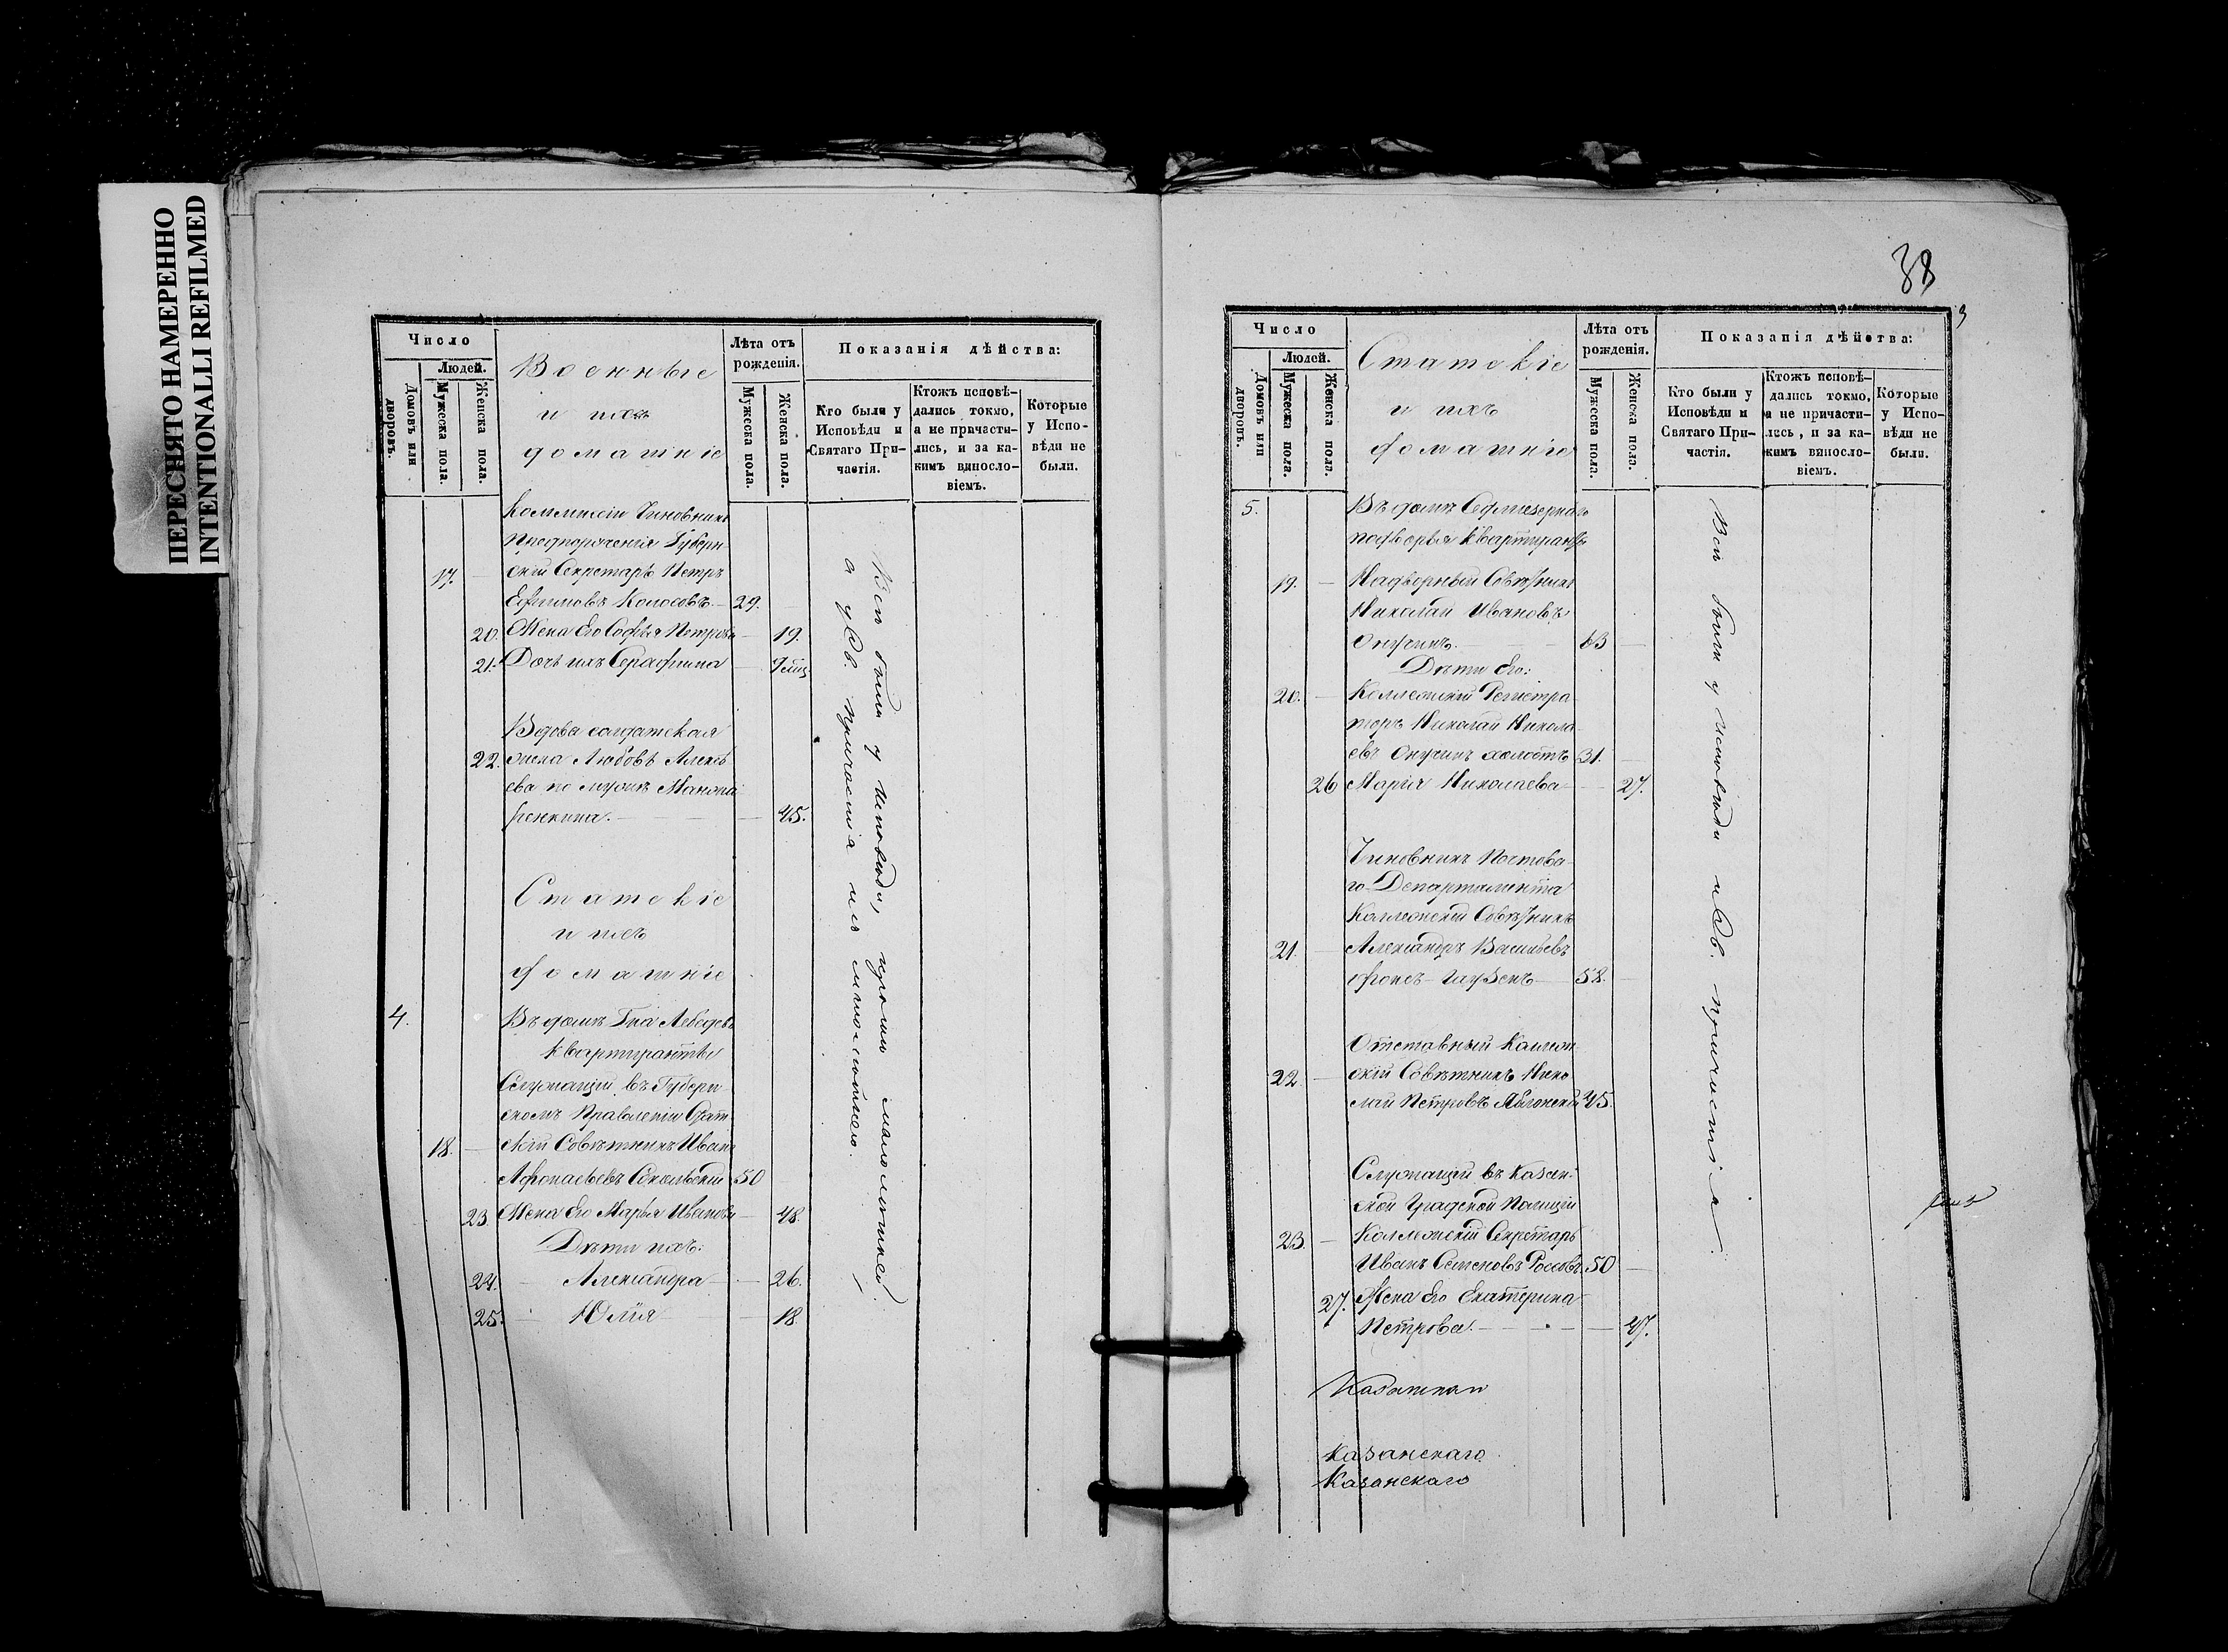 ПЕРЕСНЯТО НАМЕРЕННО
INTENTIONALLI REFILMED
Число
Людей.
Домовъ или дворовъ.
Мужеска пола.
Женска пола.
Военные
и ихъ
домашніе
Лѣта отъ рожденія.
Мужеска пола.
Женска пола.
Показанія дѣйства:
Кто были у Исповѣди и Святаго Причастія.
Ктожъ исповѣдались токмо, а не причастились, и за какимъ винословіемъ.
Которые у Исповѣди не были.
Коммисіи Чиновникъ
Губерн
17. — скій Секретарь Петръ
Ефимовъ Колосовъ — 29.
20. Жена Его Софья Петрова — 19.
21. Дочь ихъ Серафима — 9 мѣц
Вдова солдатская
22. жена Любовь Алексѣ
ева по мужѣ
— 45.
Статскіе
и ихъ
домашніе
4. Въ домѣ Гна Лебедева
квартиранты
Служащій въ Губерн
скомъ Правленіи
18. — скій Совѣтникъ Иванъ
50
23. Жена Его Марья Иванова — 48.
Дѣти ихъ:
24. — Александра — 26.
25. — Юлія — 18
Всѣ были у исповѣди, кромѣ
а у Св. причастія
38
3
Число
Людей.
Домовъ или дворовъ.
Мужеска пола.
Женска пола.
Статскіе
и ихъ
домашніе
Лѣта отъ рожденія.
Мужеска пола.
Женска пола.
Показанія дѣйства:
Кто были у Исповѣди и Святаго Причастія.
Ктожъ исповѣдались токмо, а не причастились, и за какимъ винословіемъ.
Которые у Исповѣди не были.
5. Въ домѣ Седміезернаго
подворья квартиранты
19. — Надворный Совѣтникъ
Николай Ивановъ
Онучинъ. — 63 —
Дѣти Его:
20. — Коллежскій Регистра
торъ Николай Никола
евъ Онучинъ холостъ 31. —
26 Марія Николаева — 27.
Чиновникъ Почтова
го Департамента
Коллежскій Совѣтникъ
21. — Александръ Васильевъ
— 58. —
Отставный Коллеж
22. — скій Совѣтникъ Нико
лай Петровъ Яблонскій 45.
Служащій въ Казан
ской Градской Полиціи
23. — Коллежскій Секретарь
Иванъ Семеновъ 50 —
27. Жена Его Екатерина
Петрова. — 47.
Всѣ были у исповѣди и Св. причастія.
Казанскаго
Казанскаго